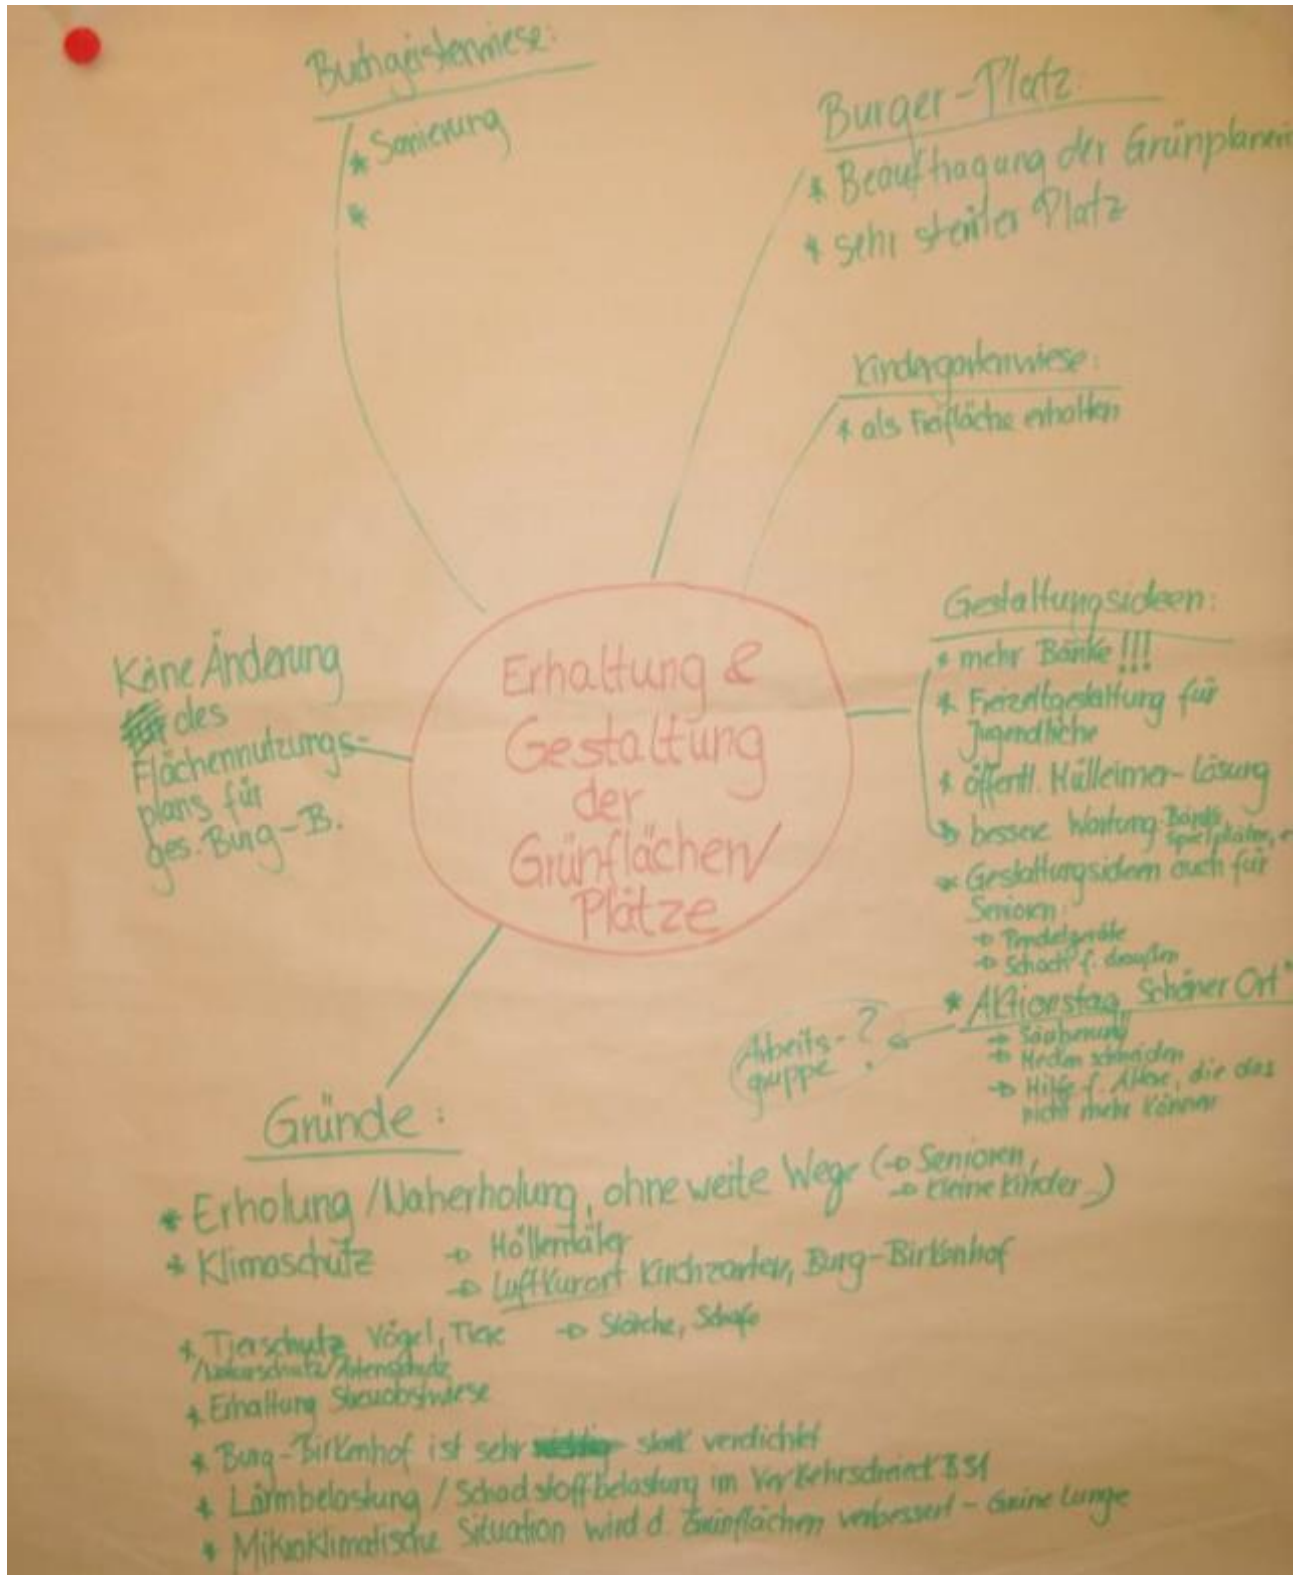 Buchgeisterwiese:
* Sanierung
*
Burger-Platz:
* Beauftragung der Grünplanerin
* sehr steriler Platz
Kindergartenwiese:
* als Freifläche erhalten
Erhaltung &
Gestaltung
der
Grünflächen/
Plätze
Keine Änderung
des
Flächennutzungs-
plans für
ges. Burg-B.
Gestaltungsideen:
* mehr Bänke!!!
* Freizeitgestaltung für
Jugendliche
* öffentl. Mülleimer-Lösung
bessere Wartung Bänke,
Spielplätze,
* Gestaltungsideen auch für
Senioren:
→ Pendelgeräte
→ Schach f. draußen
* Aktionstag "Schöner Ort"
→ Säuberung
→ Hecken schneiden
→ Hilfe f. Ältere, die das
nicht mehr können
Arbeits-
gruppe ?
Gründe:
* Erholung/Naherholung, ohne weite Wege (→ Senioren,
→ kleine Kinder)
* Klimaschutz → Höllentäler
→ Luftkurort Kirchzarten, Burg-Birkenhof
* Tierschutz Vögel, Tiere → Störche, Schafe
/Naturschutz/Artenschutz
* Erhaltung Streuobstwiese
* Burg-Birkenhof ist sehr stark verdichtet
* Lärmbelastung / Schadstoffbelastung im Verkehrsdreieck B31
* Mikroklimatische Situation wird d. Grünflächen verbessert - Grüne Lunge